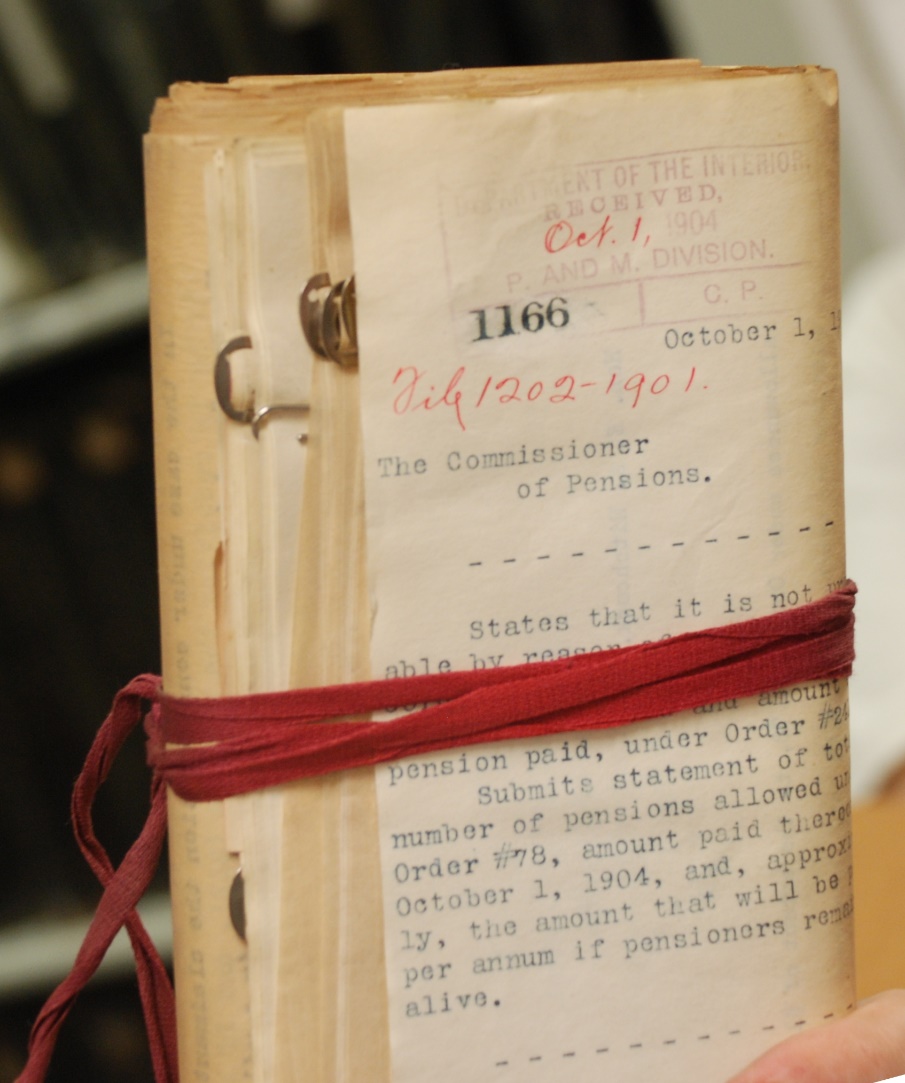 DEPARTMENT OF THE INTERIOR.
RECEIVED,
Oct. 1, 1904
P. AND M. DIVISION.
1166 C. P.
October 1,
File 1202-1901.
The Commissioner
of Pensions.
- - - - - - - - - - - -
States that it is not
able by reason of
and amount
pension paid, under Order #24
Submits statement of
number of pensions allowed
Order #78, amount paid
October 1, 1904, and,
ly, the amount that will be
per annum if pensioners
alive.
- - - - - - - - - - - -